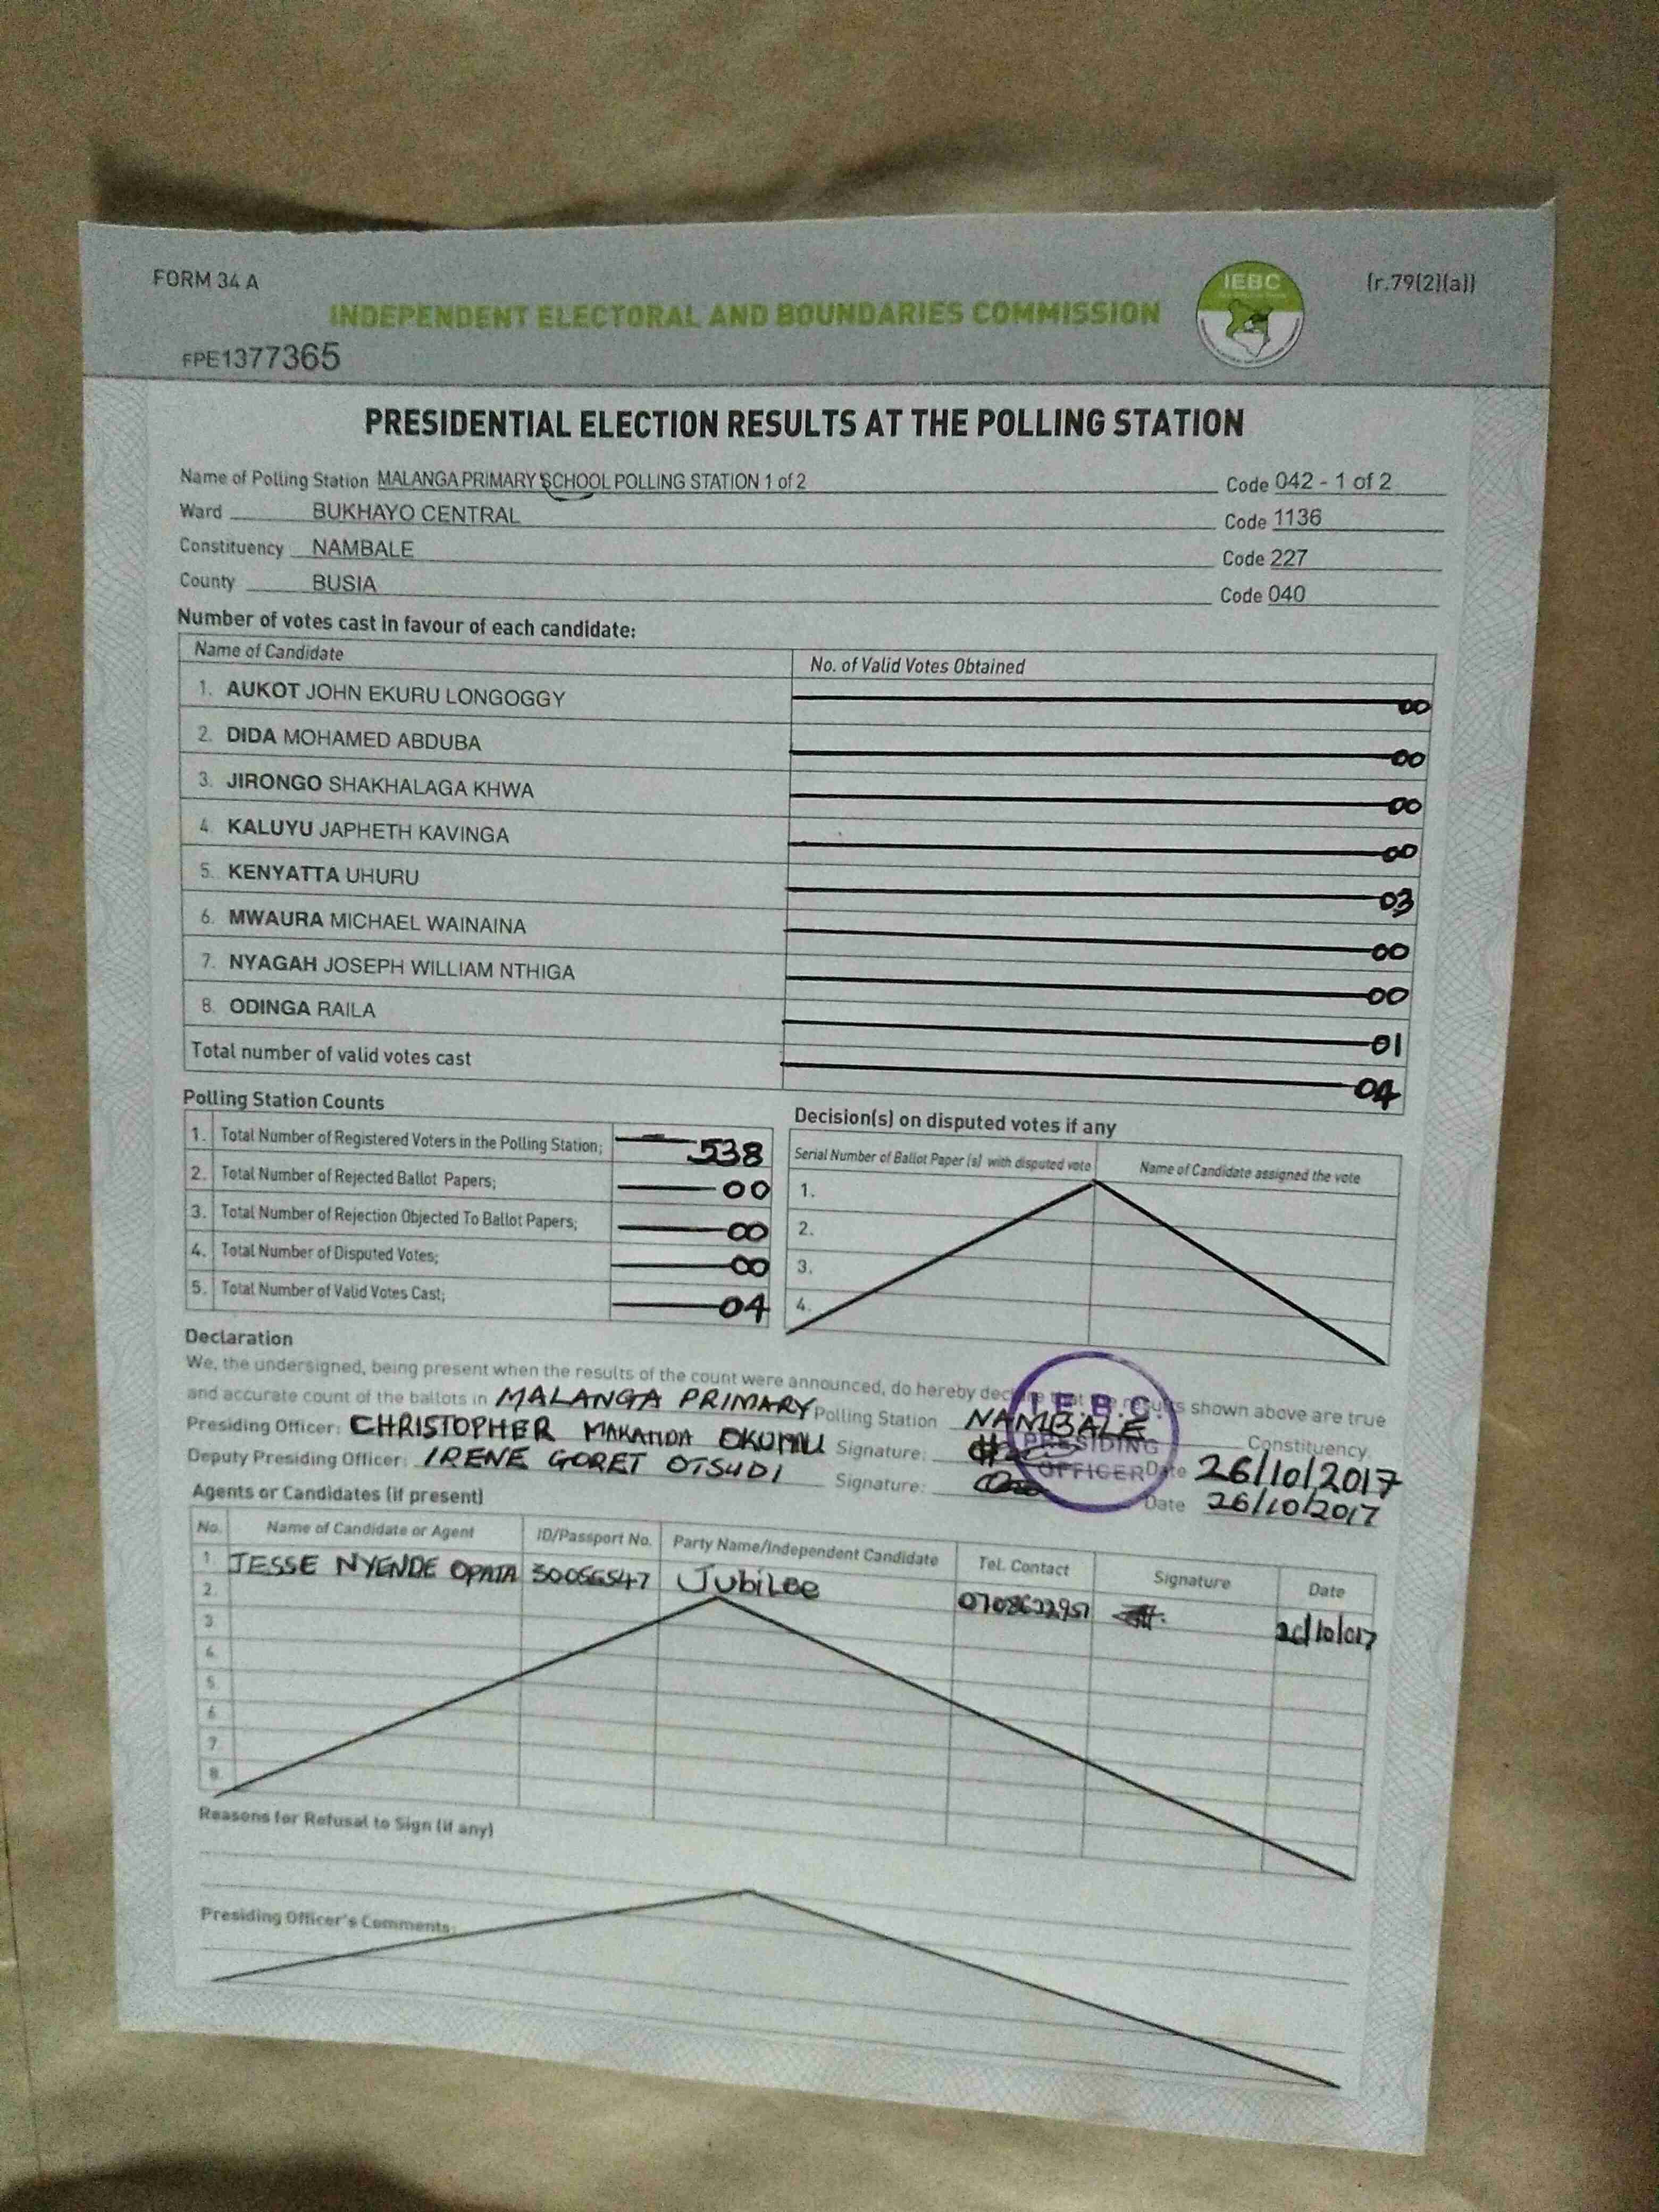 FORM 34 A
IEBC
(r.79(2)(a))
INDEPENDENT ELECTORAL AND BOUNDARIES COMMISSION
FPE1377365
PRESIDENTIAL ELECTION RESULTS AT THE POLLING STATION
Name of Polling Station MALANGA PRIMARY SCHOOL POLLING STATION 1 of 2 Code 042 - 1 of 2
Ward BUKHAYO CENTRAL Code 1136
Constituency NAMBALE Code 227
County BUSIA Code 040
Number of votes cast in favour of each candidate:
Name of Candidate No. of Valid Votes Obtained
1. AUKOT JOHN EKURU LONGOGGY 00
2. DIDA MOHAMED ABDUBA 00
3. JIRONGO SHAKHALAGA KHWA 00
4. KALUYU JAPHETH KAVINGA 00
5. KENYATTA UHURU 03
6. MWAURA MICHAEL WAINAINA 00
7. NYAGAH JOSEPH WILLIAM NTHIGA 00
8. ODINGA RAILA 01
Total number of valid votes cast 04
Polling Station Counts
1. Total Number of Registered Voters in the Polling Station; 538
2. Total Number of Rejected Ballot Papers; 00
3. Total Number of Rejection Objected To Ballot Papers; 00
4. Total Number of Disputed Votes; 00
5. Total Number of Valid Votes Cast; 04
Decision(s) on disputed votes if any
Serial Number of Ballot Paper (s) with disputed vote Name of Candidate assigned the vote
1.
2.
3.
4.
Declaration
We, the undersigned, being present when the results of the count were announced, do hereby declare that the results shown above are true
and accurate count of the ballots in MALANGA PRIMARY Polling Station NAMBALE Constituency
Presiding Officer: CHRISTOPHER MAKANDA OKUMU Signature: Date 26/10/2017
Deputy Presiding Officer: IRENE GORET OTSUDI Signature: Date 26/10/2017
I.E.B.C.
PRESIDING
OFFICER
Agents or Candidates (if present)
No. Name of Candidate or Agent ID/Passport No. Party Name/Independent Candidate Tel. Contact Signature Date
1 JESSE NYENDE OPATA Jubilee
2.
3
4
5
6
7
8
Reasons for Refusal to Sign (if any)
Presiding Officer's Comments: